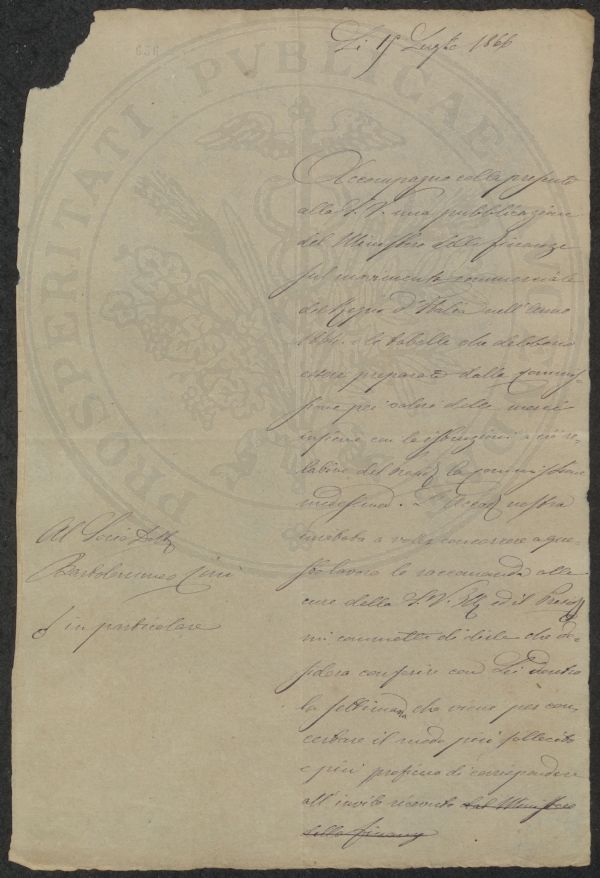 Li 15 Luglio 1866
Accompagno colla presente
alla S.V. una pubblicazione
del Ministero delle finanze
sul movimento commerciale
del Regno d'Italia nell'anno
e le tabelle che debbono
essere preparate dalla Commis-
sione pei valori delle merci
insieme con le istruzioni a ciò re-
lative del la commissione
medesima. nostra
invitata a voler concorrere a que-
sto lavoro lo raccomanda alle
cure della S.V. Ill ed il Presid
mi commette di dirle che de-
sidera conferire con Lei dentro
la settimana che viene per con-
certare il modo più sollecito
e più proficuo di corrispondere
all'invito ricevuto dal Ministero
delle finanze
Al Socio Dott
Bartolommeo Cini
in particolare
PROSPERITATI PVBLICAE
636